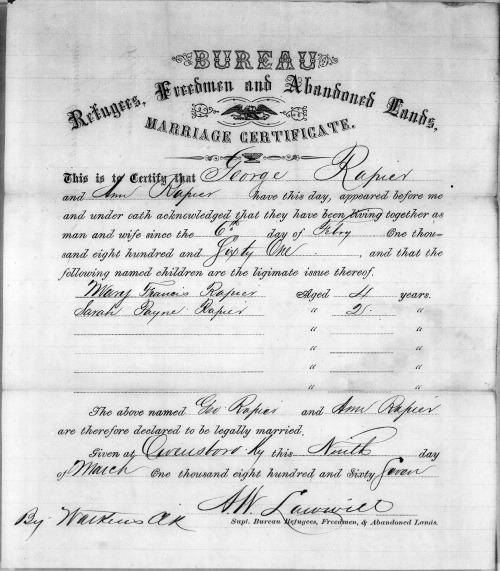 BUREAU
Refugees, Freedmen and Abandoned Lands,
MARRIAGE CERTIFICATE.
This is to Certify that George Rapier
and Ann Rapier have this day, appeared before me
and under oath acknowledged that they have been living together as
man and wife since the 6th day of Feby One thou-
sand eight hundred and Sixty One, and that the
following named children are the ligimate issue thereof.
Mary Francis Rapier Aged 4 years.
Sarah Jayne Rapier " 2 "
" "
" "
" "
" "
The above named Geo Rapier and Ann Rapier
are therefore declared to be legally married.
Given at Owensboro Ky this Ninth day
of March One thousand eight hundred and Sixty Seven
A. W. Lawwill
By Watkins Supt. Bureau Refugees, Freedmen, & Abandoned Lands.